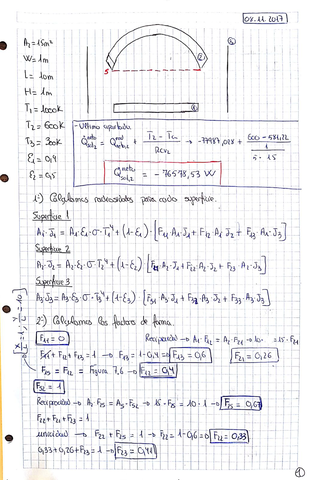 07.11.2017
A₂=15m²
W=1m
L=10m
H=1m
T₁=1000K
T₂=600K
T₃=300K
ε₁=0,4
ε₂=0,5
-Ultimo apartado
Q̇ neto sal,2 = Q̇ rad + (T₂ - T∞)/Rcv₂ → -77987,028 + (600-581,22)/(1/(5·15))
Q̇ neto sal,2 = -76578,53 W
1º) Calculamos radiosidades para cada superficie.
Superficie 1
A₁·J₁ = A₁·ε₁·σ·T₁⁴ + (1-ε₁)·[F₁₁·A₁·J₁ + F₁₂·A₁·J₂ + F₁₃·A₁·J₃]
Superficie 2
A₂·J₂ = A₂·ε₂·σ·T₂⁴ + (1-ε₂)·[F₂₁·A₂·J₁ + F₂₂·A₂·J₂ + F₂₃·A₂·J₃]
Superficie 3
A₃·J₃ = A₃·ε₃·σ·T₃⁴ + (1-ε₃)·[F₃₁·A₃·J₁ + F₃₂·A₃·J₂ + F₃₃·A₃·J₃]
2º) Calculamos los factores de forma.
F₁₁=0
Reciprocidad → A₁·F₁₂ = A₂·F₂₁ → 10· = 15·F₂₁
F₁₁+F₁₂+F₁₃=1 → F₁₃=1-0,4 → F₁₃=0,6
F₂₁=0,26
F₁₅ = F₁₂ = Figura 7.6 → F₁₂=0,4
F₅₂=1
Reciprocidad → A₂·F₂₅ = A₅·F₅₂ → 15·F₂₅ = 10·1 → F₂₅=0,67
F₂₂+F₂₁+F₂₃=1
unicidad → F₂₂+F₂₅=1 → F₂₂=1-0,6 → F₂₂=0,33
0,33+0,26+F₂₃=1 → F₂₃=0,41
1